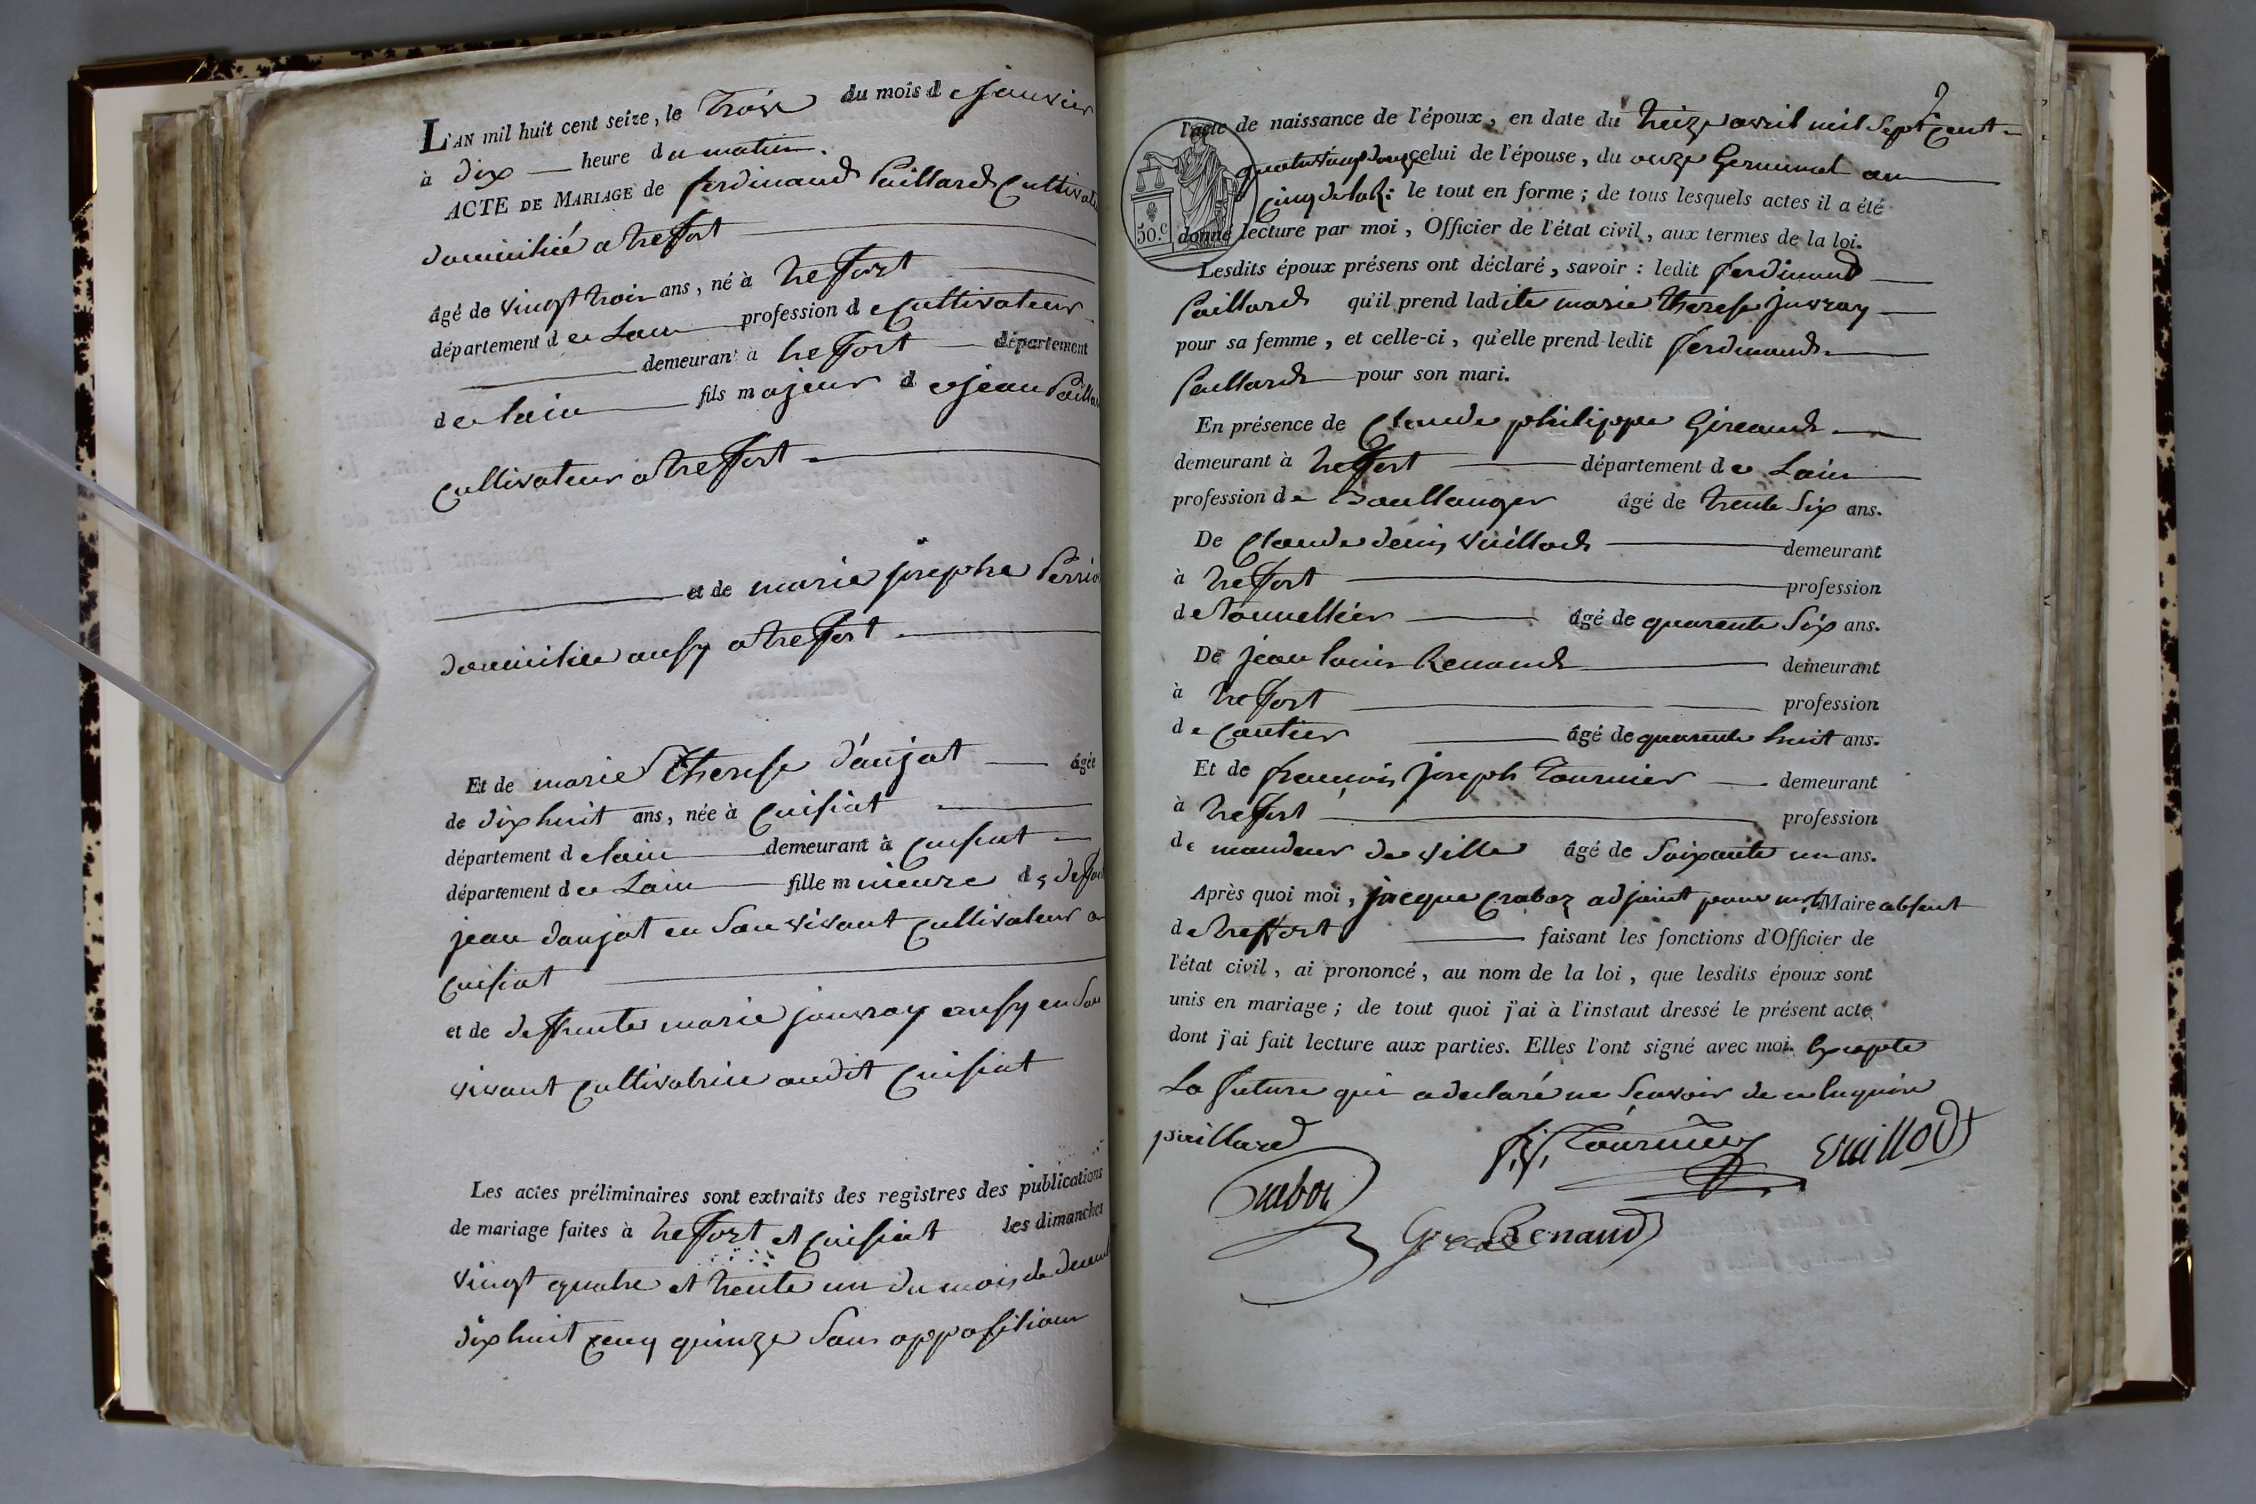 L'AN mil huit cent seize, le Trois du mois de janvier
à dix heure du matin.
ACTE DE MARIAGE de ferdinand Paillard Cultivat
domicilié a treffort
âgé de vingt trois ans, né à treffort
département de Lain profession de Cultivateur
demeurant à treffort département
de lain fils majeur de jean Pailla
Cultivateur a treffort
et de marie josephe Perri
domicilie aussy a treffort
Et de marie Therese d'anjat âgée
de dix huit ans, née à Cuisiat
département de lain demeurant à Cuisiat
département de Lain fille mineure de deff
jean danjat en Son vivant Cultivateur a
Cuisiat
et de deffunte marie jouvray aussy en Son
vivant Cultivatrice audit Cuisiat
Les actes préliminaires sont extraits des registres des publications
de mariage faites à treffort et Cuisiat les dimanches
vingt quatre et trente un du mois de decemb
dix huit Cent quinze Sans opposition
l'acte de naissance de l'époux, en date du treize avril mil Sept Cent
quatrevingt douze celui de l'épouse, du onze Germinal an
Cinq de la R: le tout en forme; de tous lesquels actes il a été
50.c donné lecture par moi, Officier de l'état civil, aux termes de la loi.
Lesdits époux présens ont déclaré, savoir: ledit ferdinand
Paillard qu'il prend ladite marie therese juvray
pour sa femme, et celle-ci, qu'elle prend ledit ferdinand
Paillard pour son mari.
En présence de Claude philippe Gireaud
demeurant à treffort département de Lain
profession de Boullanger âgé de trente Six ans.
De Claude denis vuillod demeurant
à treffort profession
de tonnellier âgé de quarente Six ans.
De jean louis Renaud demeurant
à treffort profession
de Cantier âgé de quarente huit ans.
Et de françois joseph Tournier demeurant
à treffort profession
de mandeur de ville âgé de Soixante un ans.
Après quoi moi, jacque Craboz adjoint pour mr le Maire absent
de treffort faisant les fonctions d'Officier de
l'état civil, ai prononcé, au nom de la loi, que lesdits époux sont
unis en mariage; de tout quoi j'ai à l'instaut dressé le présent acte
dont j'ai fait lecture aux parties. Elles l'ont signé avec moi. Excepte
La future qui a declaré ne Scavoir de ce Enquise
paillard
f. j. Tournier vuillod
Craboz
Renaud